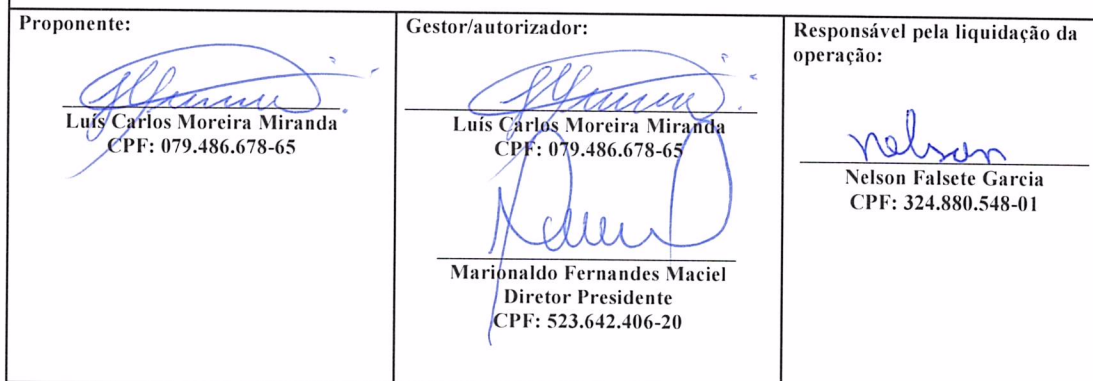 Proponente:
Luís Carlos Moreira Miranda
CPF: 079.486.678-65
Gestor/autorizador:
Luís Carlos Moreira Miranda
CPF: 079.486.678-65
Marionaldo Fernandes Maciel
Diretor Presidente
CPF: 523.642.406-20
Responsável pela liquidação da
operação:
nelson
Nelson Falsete Garcia
CPF: 324.880.548-01